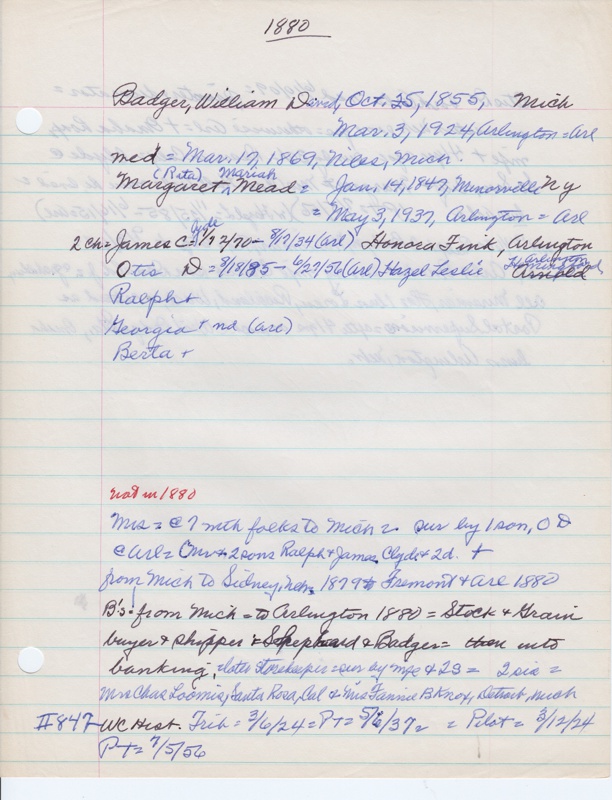 1880
Badger, William David, Oct. 25, 1855, Mich
Mar. 3, 1924, Arlington = Are
med = Mar. 17, 1869, Niles, Mich.
(Reta) Mariah
Margaret ^ Mead = Jan. 14, 1847, Minorville Ny
= May 3, 1937, Arlington = Are
Clyde
2 ch = James C = 1/22/70 - 8/7/34 (are) Honora Fink, Arlington
Arlington
Otis D = 8/18/85 - 6/27/56 (are) Hazel Leslie
Ralph +
Georgia + nd (are)
Berta +
not in 1880
Mrs = @ 7 with folks to Mich = sur by 1 son, O D
@ are = Omr + 2 sons Ralph + James Clyde + 2d. +
from Mich to Sidney, Neb. 1879 + Fremont + are 1880
B's: from Mich = to Arlington 1880 = Stock + Grain
buyer + shipper = Shephard & Badger = then into
banking, = later storekeeper = sur by wife + 2S = 2 sis =
Mrs Chas Loomis, Santa Rosa, Cal + Mrs Fannie B Knox, Detroit, Mich
#847 - WC Hist. Trib = 3/6/24 = PT = 5/6/37 = = Pilot = 3/12/24
PT = 7/5/56